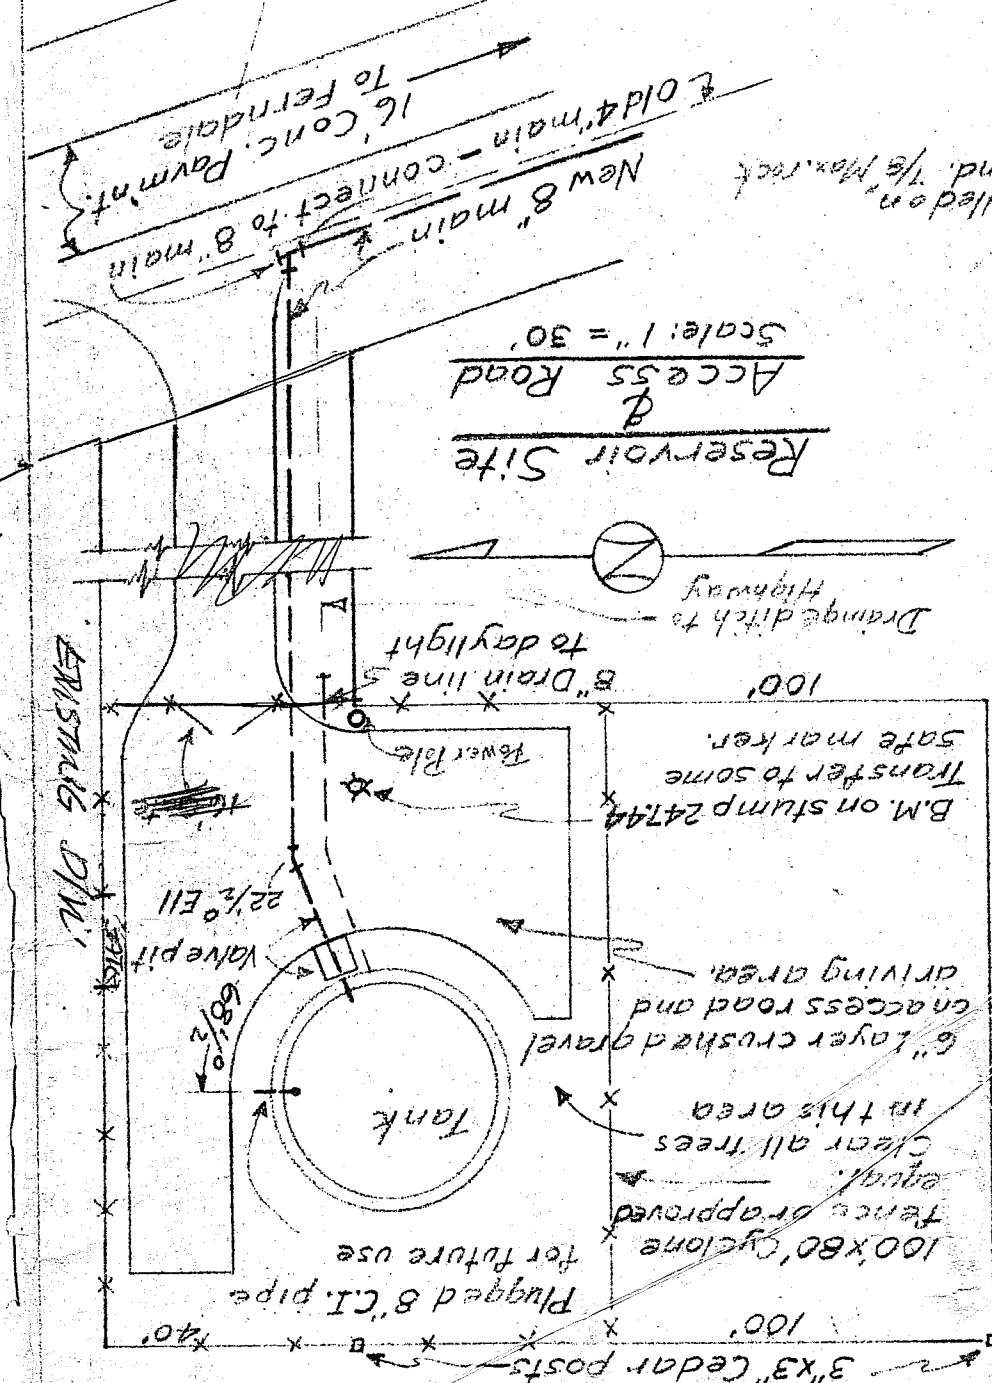 3"x3" Cedar posts
100'
40'
Plugged 8" C.I. pipe
for future use
100'x80' Cyclone
fence or approved
equal.
Clear all trees
in this area
Tank
68½°
6" Layer crushed gravel
on access road and
driving area.
Valve pit
22½° Ell
B.M. on stump 247.44
Transfer to some
safe marker.
Power Pole
100'
8" Drain line
to daylight
Drainge ditch to
Highway
EXISTING D/W
N
Reservoir Site
&
Access Road
Scale: 1" = 30'
New 8" main
℄ old 4" main - connect to 8" main
16' Conc. Pavm'nt.
To Ferndale
nd. 7/8" Max. rock